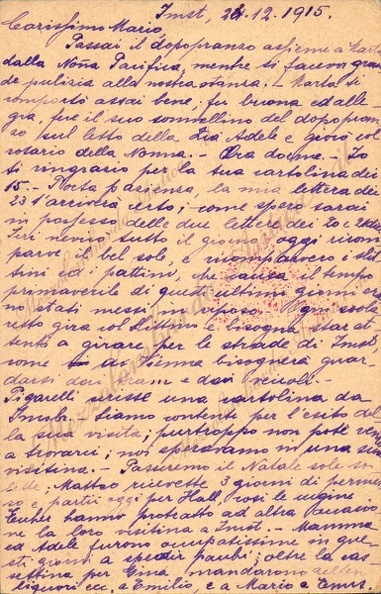 Imst, 24.12.1915.
Carissimo Mario,
Passai il dopopranso assieme a Marta
dalla Nonna Pacifica, mentre si faceva gran
de pulizia alla nostra stanza. - Marta si
comportò assai bene, fu buona ed alle-
gra, fece il suo sonnellino del dopopran
so sul letto della Zia Adele e giocò col
rosario della Nonna. - Ora dorme. - Io
ti ringrazio per la tua cartolina dei
15. - Porta pazienza, la mia lettera dei
23 t'arriverà certo; come spero sarai
in possesso delle due lettere dei 20 e
Ieri nevicò tutto il giorno, oggi ricom
parve il bel sole, e ricomparvero i slit
tini ed i pattini, che causa il tempo
primaverile di questi ultimi giorni era
no stati messi in riposo. - Ogni
retto gira col slittino e bisogna star at
tento a girare per le strade di Imst,
come a Vienna bisognerà guar
darsi dai tram e dai veicoli. -
Pigarelli scrisse una cartolina da
Siamo contente per l'esito del
la sua visita; purtroppo non potè venir
a trovarci; noi speravamo in una sua
visitina. - Passeremo il Natale sole so
lette; Matteo ricevette 3 giorni di permes
so e partì oggi per Hall, così le cugine
hanno protratto ad altra occasio
ne la loro visitina a Imst. - Mamma
ed Adele furono occupatissime in que
sti giorni a spedir pacchi; oltre la cas
settina per Gina, mandarono
liquori ecc, a Emilio, e a Mario a